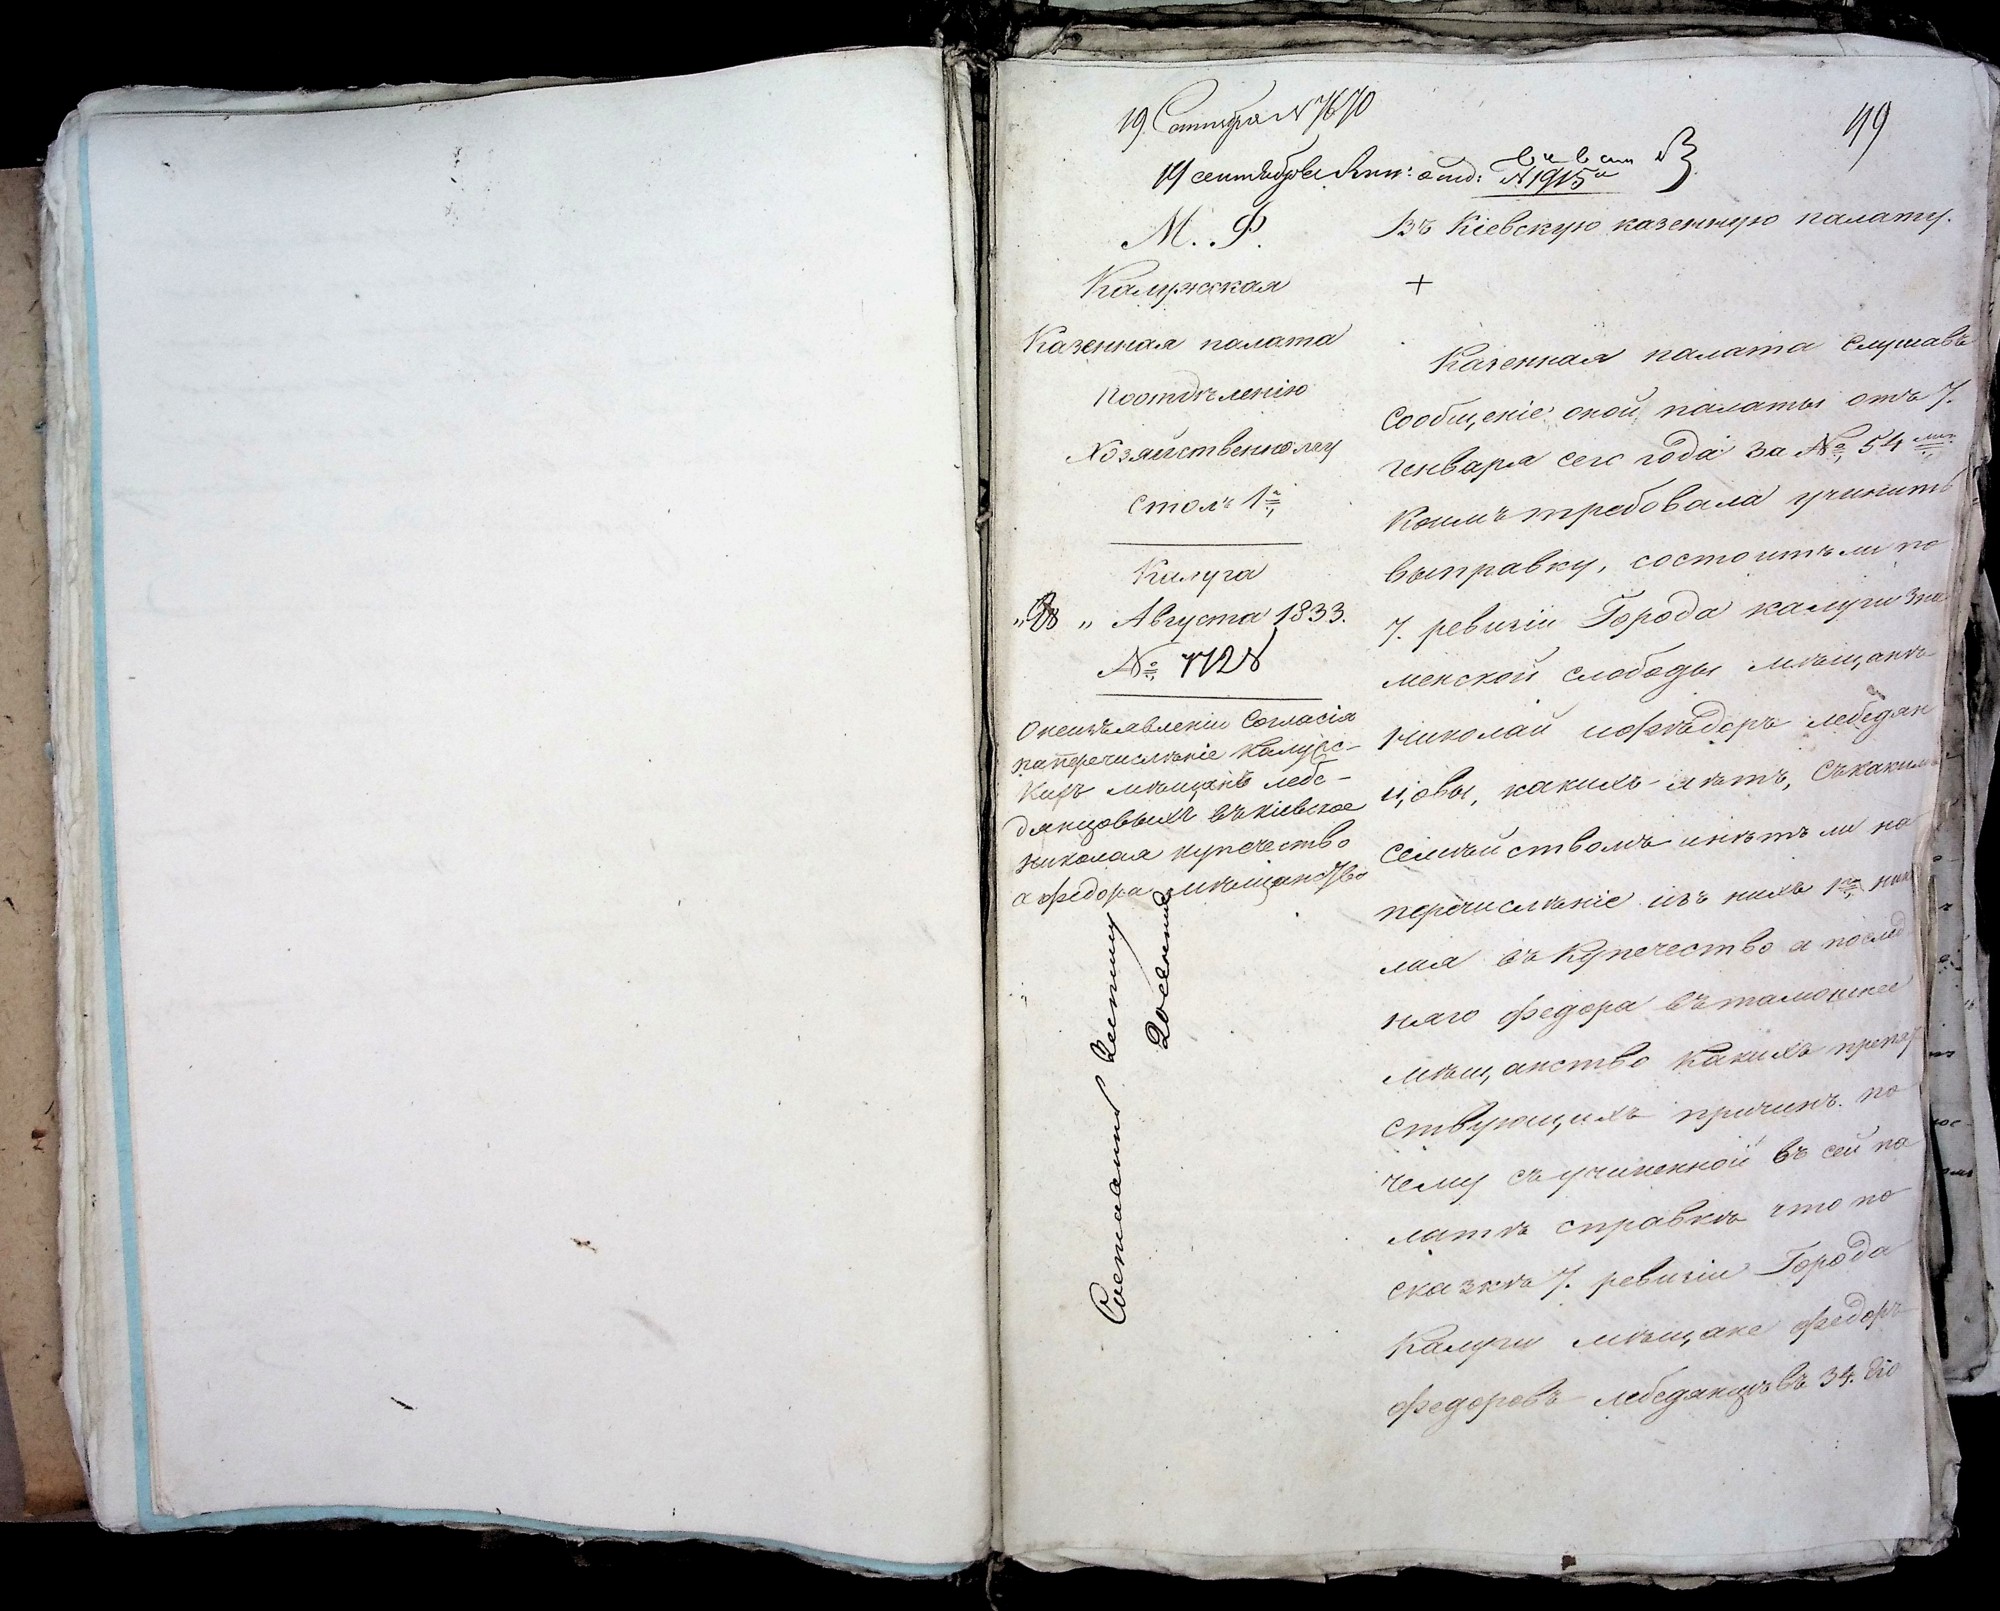 19 Сентября N 7670
49
19 сентября Рек: отд:
N 1915
М. Ф.
Калужская
Казенная палата
По отдѣленію
Хозяйственному
столъ 1й
Калуга
" " Августа 1833.
№ 7728
О неизъявленіи Согласія
на перечисленіе Калужс-
кихъ мѣщанъ лебе-
дянцовыхъ въ кіевское
Николая купечество
а федора мѣщанство
Въ Кіевскую казенную палату.
+
Казенная палата слушавъ
сообщеніе оной палаты отъ 7.
генваря сего года за № 54мъ
коимъ требовала учинить
выправку, состоитъ ли по
7. ревизіи Города калуги Зна
менской слободы мѣщанъ
Николай и Фѣдоръ лебедян
цовы, какихъ лѣтъ, съ какимъ
семѣйствомъ и нѣтъ ли на
перечисленіе изъ нихъ 1го Нико
лая въ Купечество а послѣд
няго федора въ тамошнее
мѣщанство какихъ препят
ствующихъ причинъ. по
чему съ учиненной въ сей па
латѣ справкѣ что по
сказкѣ 7. ревизіи Города
Калуги мѣщане федоръ
федоровъ лебедянцовъ 34.